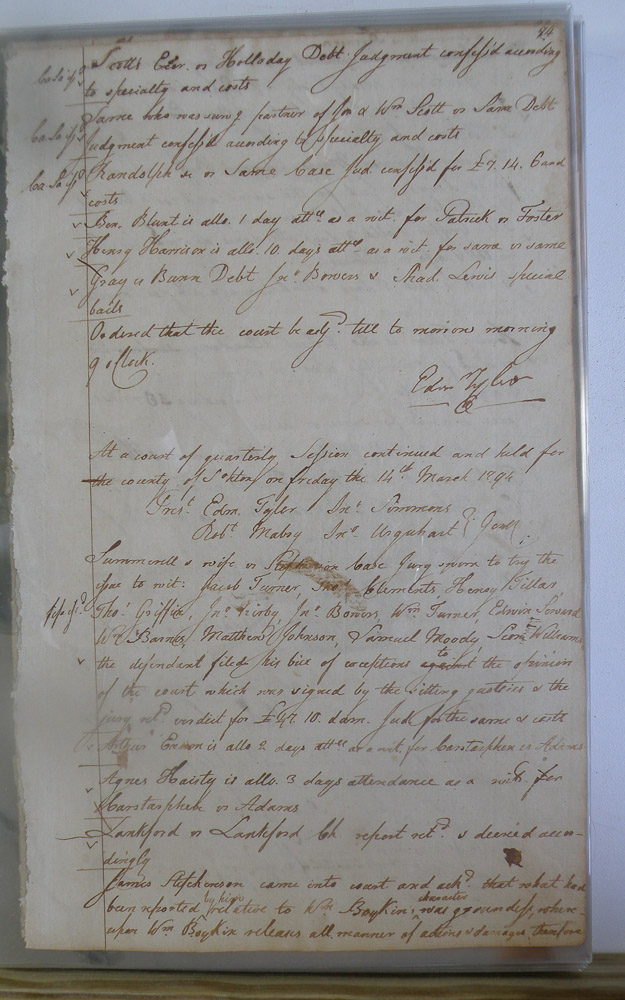 84
Ca Sa isd Scotts Exer. vs Holloday Debt Judgment confess'd acording
to specialty and costs
Ca Sa isd Same who was surv.g partner of Jno & Wm Scott vs Same Debt
Judgment confess'd acording to specialty and costs
Ca Sa isd Randolph &c vs Same Case Jud. confess'd for £7.14.6 and
costs
Ben. Blunt is allo. 1 day attce as a wit. for Patrick vs Foster
Henry Harrison is allo. 10. days attce as a wit. for same vs same
Gray vs Bunn Debt Jno. Bowers & Shad. Lewis special
bails
Ordered that the court be adjd. till to morrow morning
9 oClock.
Edm Tyler
At a court of quarterly Session continued and held for
the county of So.hton on friday the 14th March 1794
Prest. Edm. Tyler Jno. Simmons
Robt. Mabry Jno. Urquhart Gent.
Summerell & wife vs Case Jury sworn to try the
issue to wit: Jacob Turner, Clements, Henry Pillar,
Thos. Griffin, Jno. Kirby, Jno. Bowers, Wm. Turner, Edwin Seward
Wm. Barnes, Matthew Johnson, Samuel Moody, Williams,
the defendant filed his bill of exceptions against to the opinion
of the court which was signed by the sitting justices & the
jury retd. verdict for £47.10. dam. Jud. for the same & costs
Arthur is allo 2 days attce as a wit. for Carstarphen vs Adams
Agnes Haisty is allo. 3 days attendance as a wit. for
Carstarphen vs Adams
Lankford vs Lankford Ch report retd. & decreed accor-
dingly
James Stephenson came into court and ackd. that what had
been reported by him relative to Wm Boykins character was groundless where-
upon Wm Boykin releases all manner of actions & damages therefore